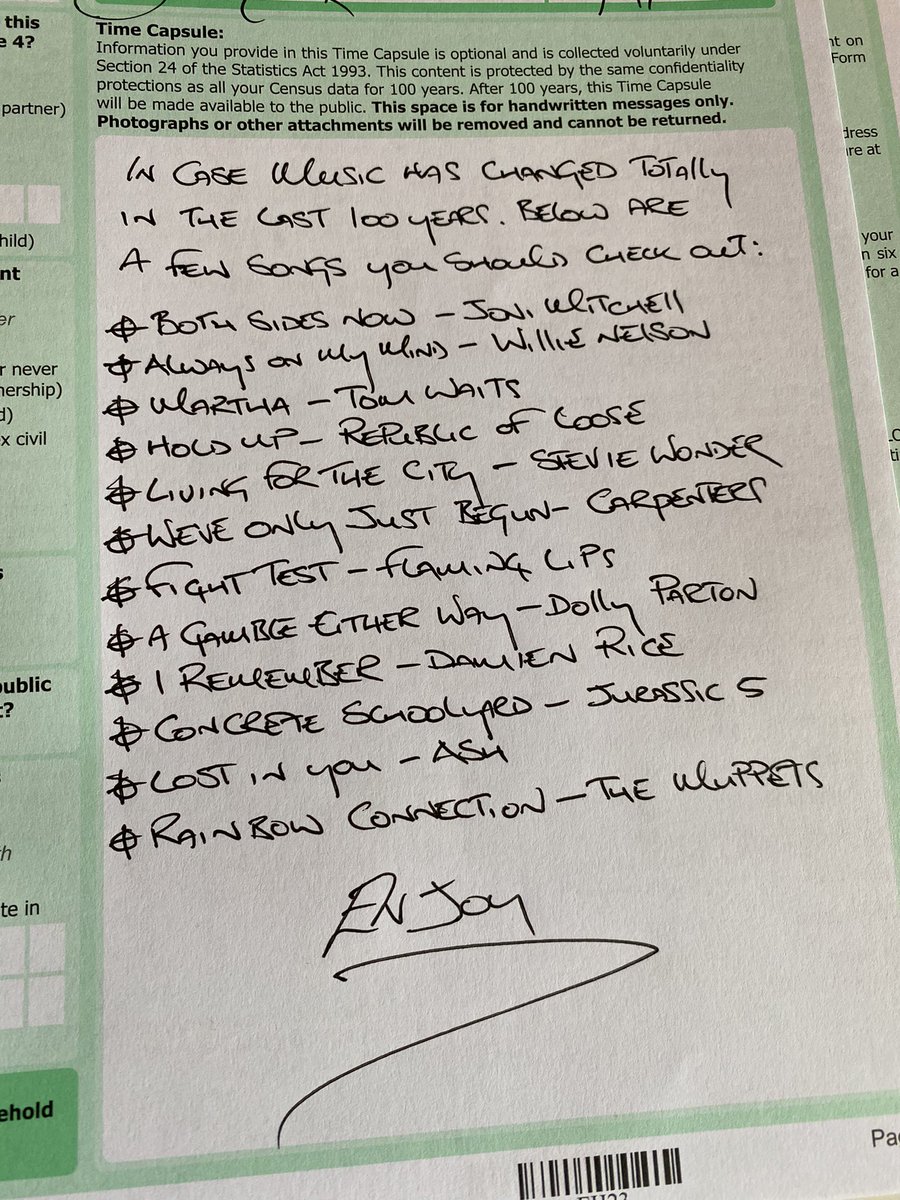 this
e 4?
partner)
hild)
nt
er
r never
nership)
d)
x civil
s
ublic
t?
s
th
te in
ehold
Time Capsule:
Information you provide in this Time Capsule is optional and is collected voluntarily under
Section 24 of the Statistics Act 1993. This content is protected by the same confidentiality
protections as all your Census data for 100 years. After 100 years, this Time Capsule
will be made available to the public. This space is for handwritten messages only.
Photographs or other attachments will be removed and cannot be returned.
IN CASE MUSIC HAS CHANGED TOTALLY
IN THE LAST 100 YEARS. BELOW ARE
A FEW SONGS YOU SHOULD CHECK OUT:
BOTH SIDES NOW - JONI MITCHELL
ALWAYS ON MY MIND - WILLIE NELSON
MARTHA - TOM WAITS
HOLD UP - REPUBLIC OF LOOSE
LIVING FOR THE CITY - STEVIE WONDER
WEVE ONLY JUST BEGUN - CARPENTERS
FIGHT TEST - FLAMING LIPS
A GAMBLE EITHER WAY - DOLLY PARTON
I REMEMBER - DAMIEN RICE
CONCRETE SCHOOLYARD - JURASSIC 5
LOST IN YOU - ASH
RAINBOW CONNECTION - THE MUPPETS
ENJOY
nt on
Form
dress
are at
your
n six
for a
Pa